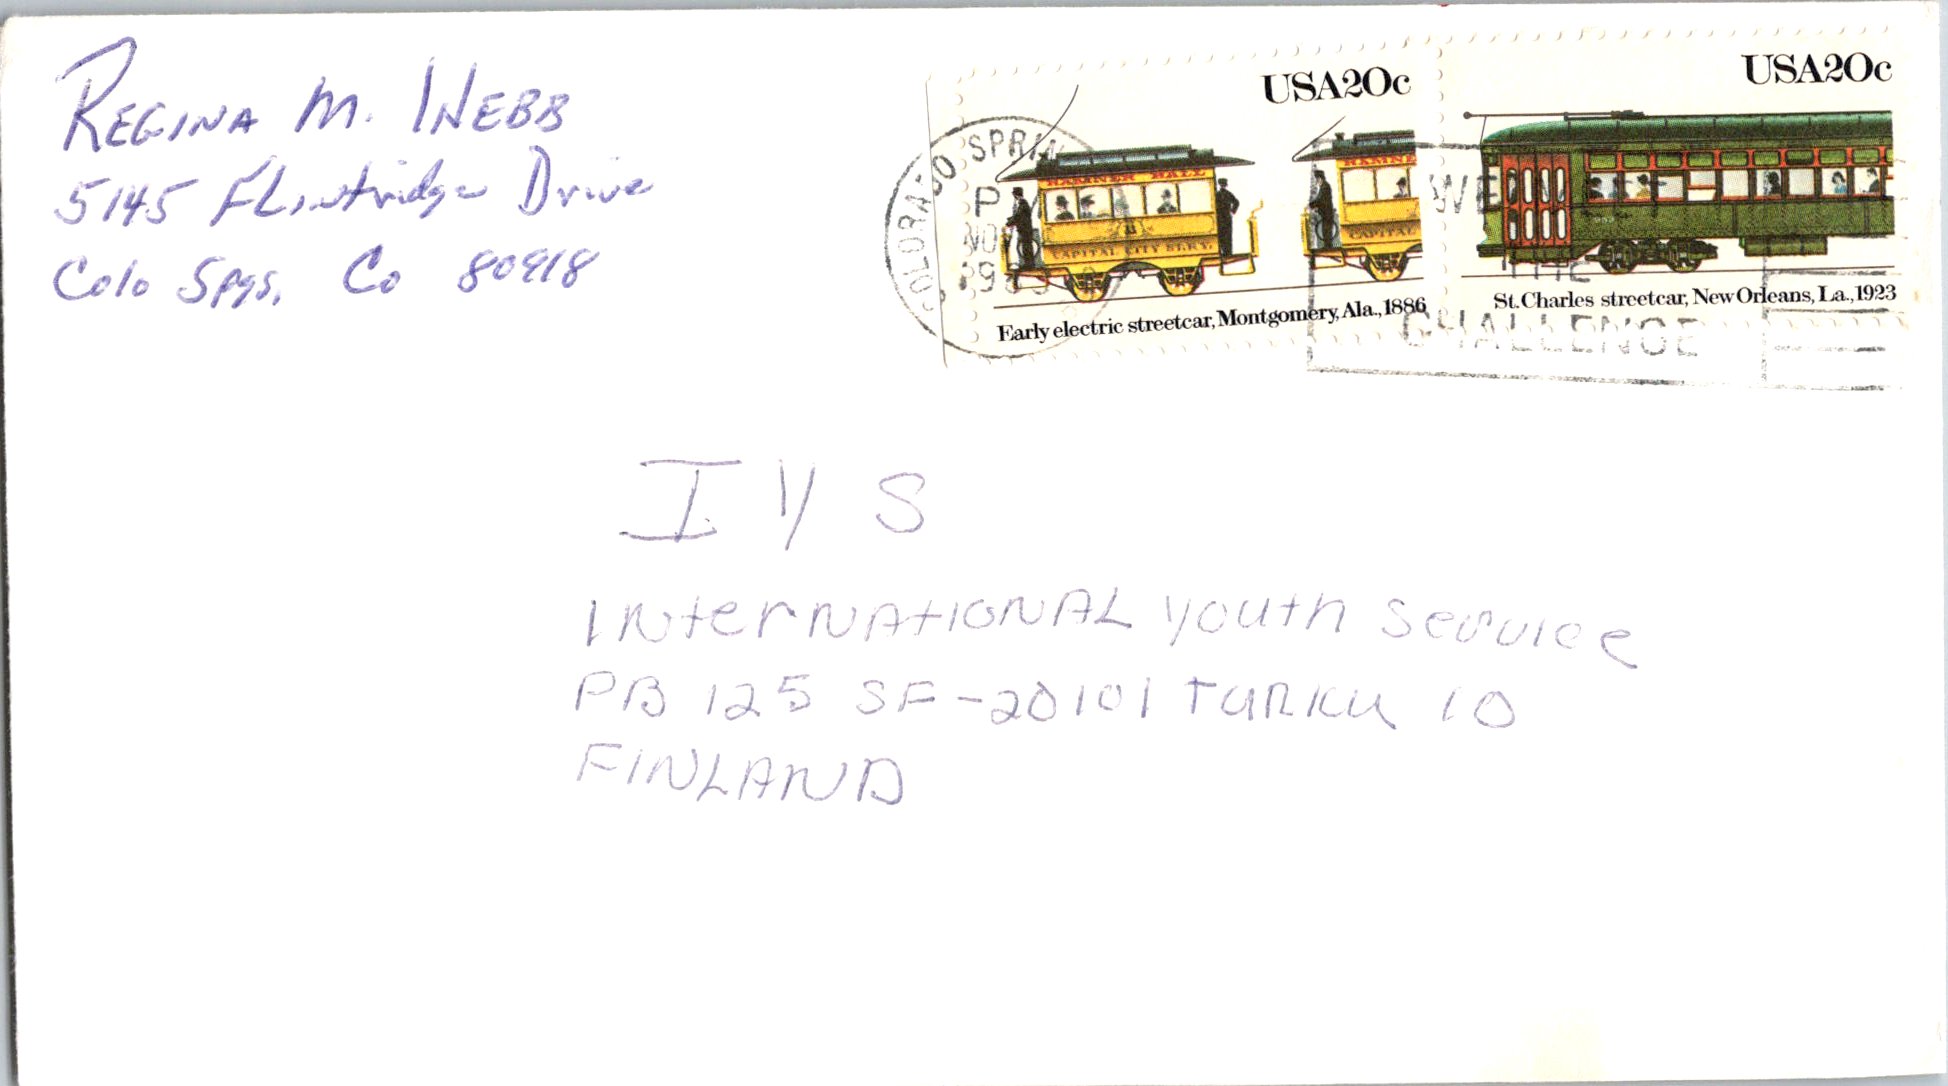 REGINA M. WEBB
5145 Flintridge Drive
Colo Spgs, Co 80918
USA20c
USA20c
COLORADO SPRIN
P
NOV
WE
THE
CHALLENGE
HAMNER HALL
CAPITAL CITY ST.RY.
HAMNE
CAPITAL
Early electric streetcar, Montgomery, Ala., 1886
St. Charles streetcar, New Orleans, La., 1923
I Y S
INterNAtIONAL Youth Service
PB 125 SF-20101 TURKU 10
FINLAND